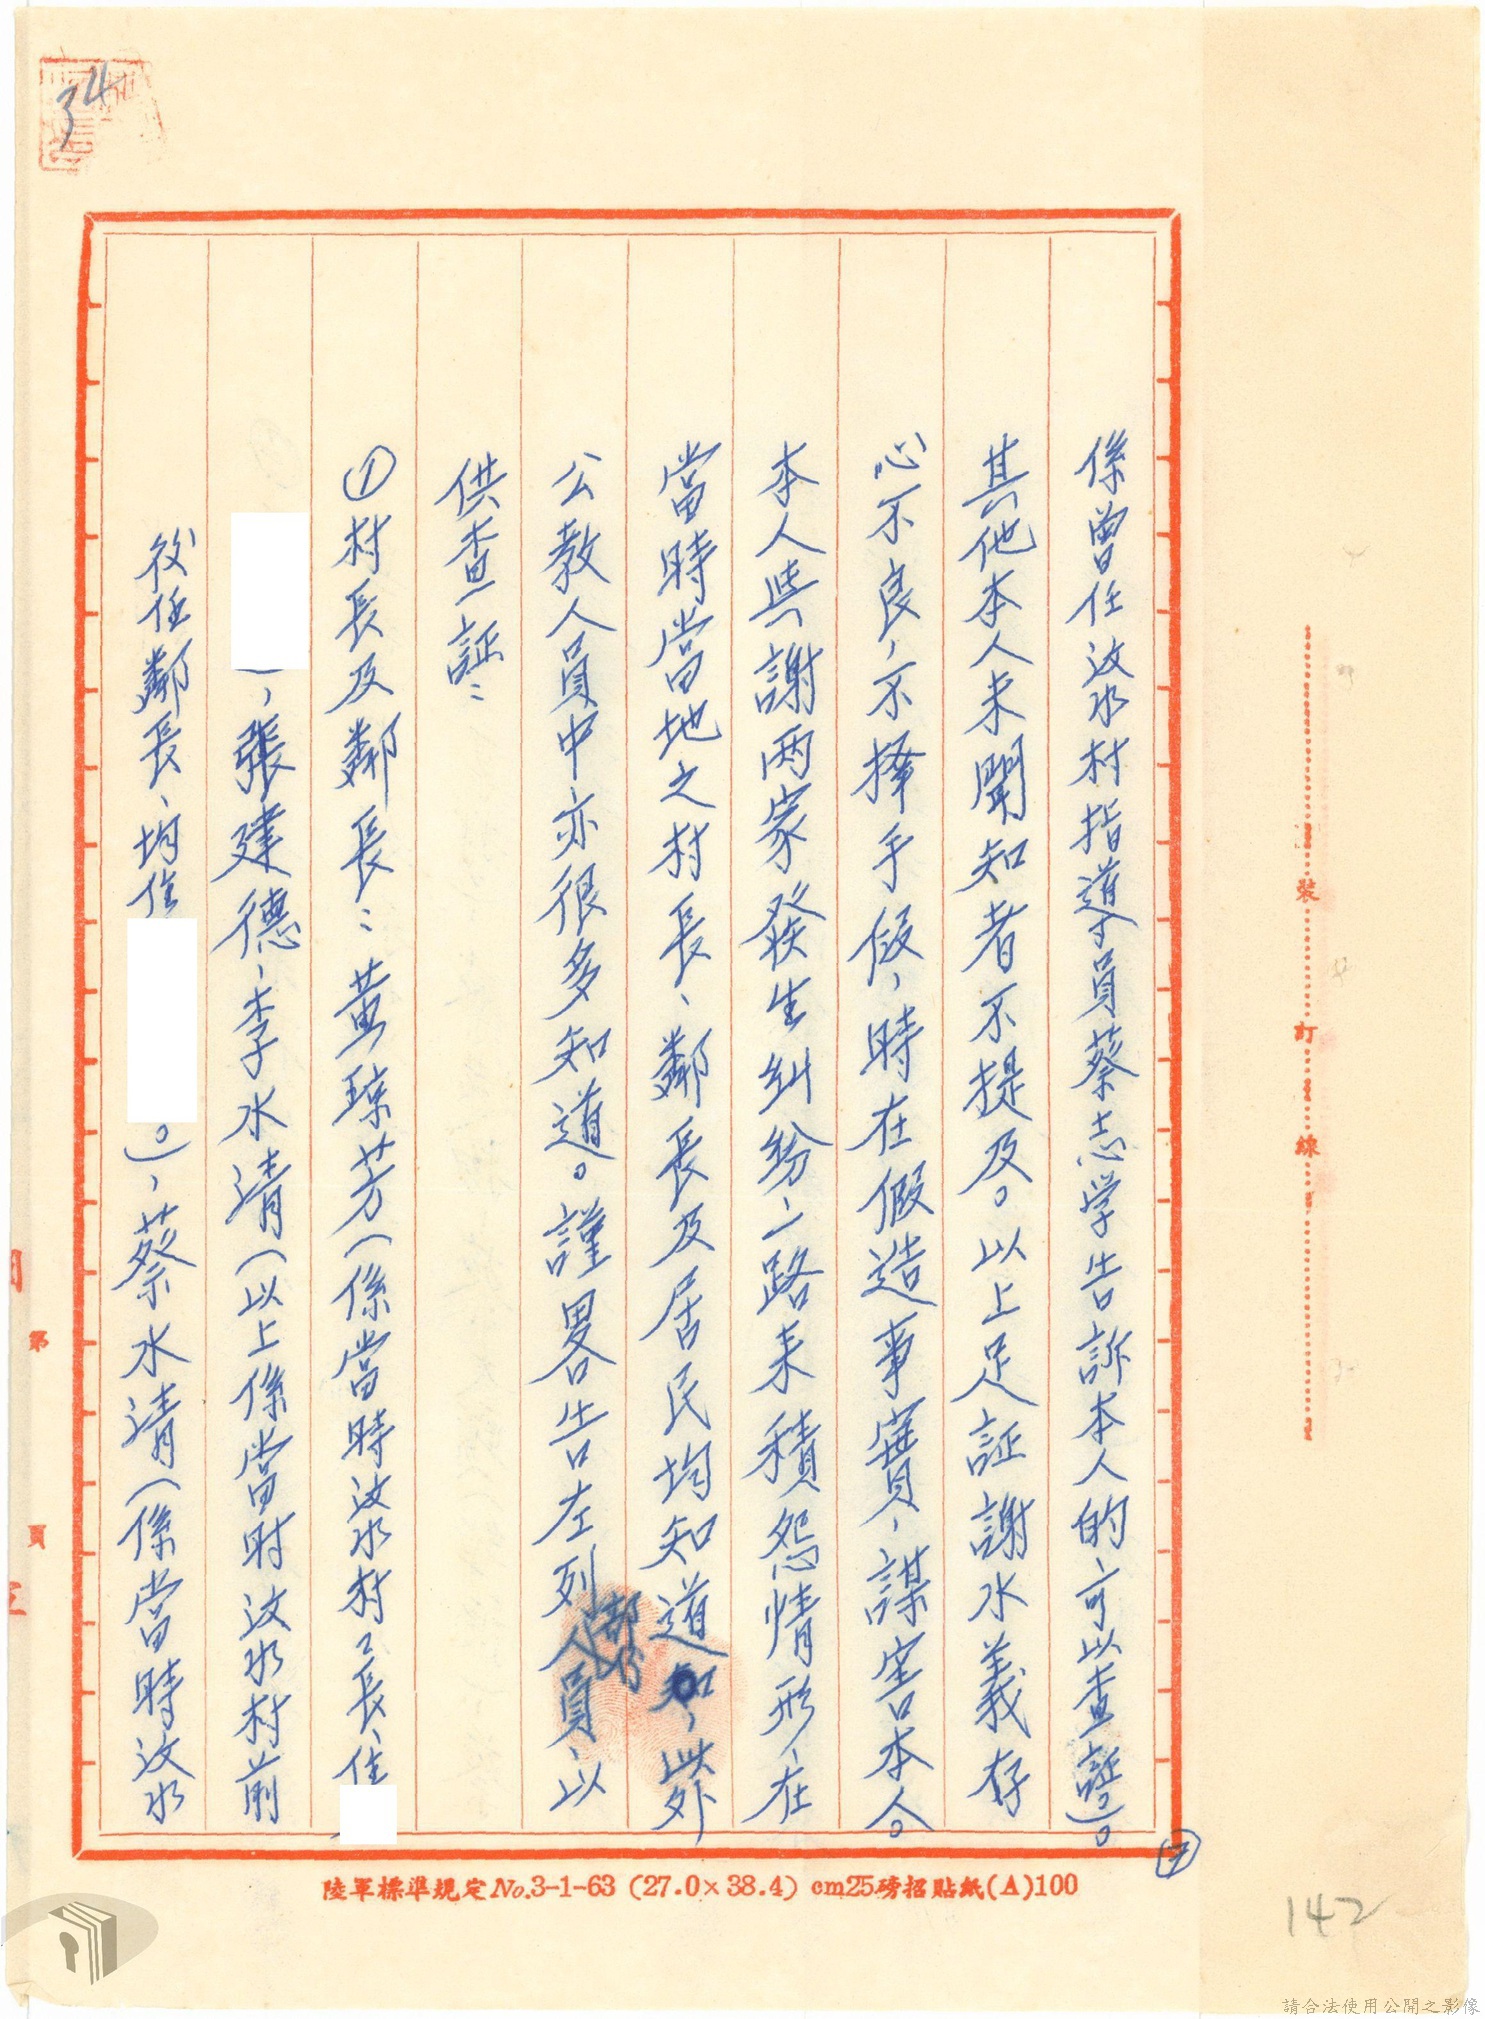 係曾任汶水村指導員蔡志学告訴本人的,可以查証。)。
其他本人未聞知者不提及。以上足証謝水義存
心不良,不擇手假,時在假造事實,謀害本人。
本人與謝兩家發生糾紛,一路来積怨情形,在
當時當地之村長、鄰長及居民均知道,此外
公教人員中亦很多知道。謹畧告左列部份人員,以
供查証:
①村長及鄰長:黃琼芳(係當時汶水村村長、住
),張建德,李水清(以上係當时汶水村前
後任鄰長、均住
。),蔡水清(係當時汶水
陸軍標準規定No.3-1-63 (27.0×38.4) cm25磅招貼紙(A)100
裝訂線
第
頁
34
7
142
請合法使用公開之影像